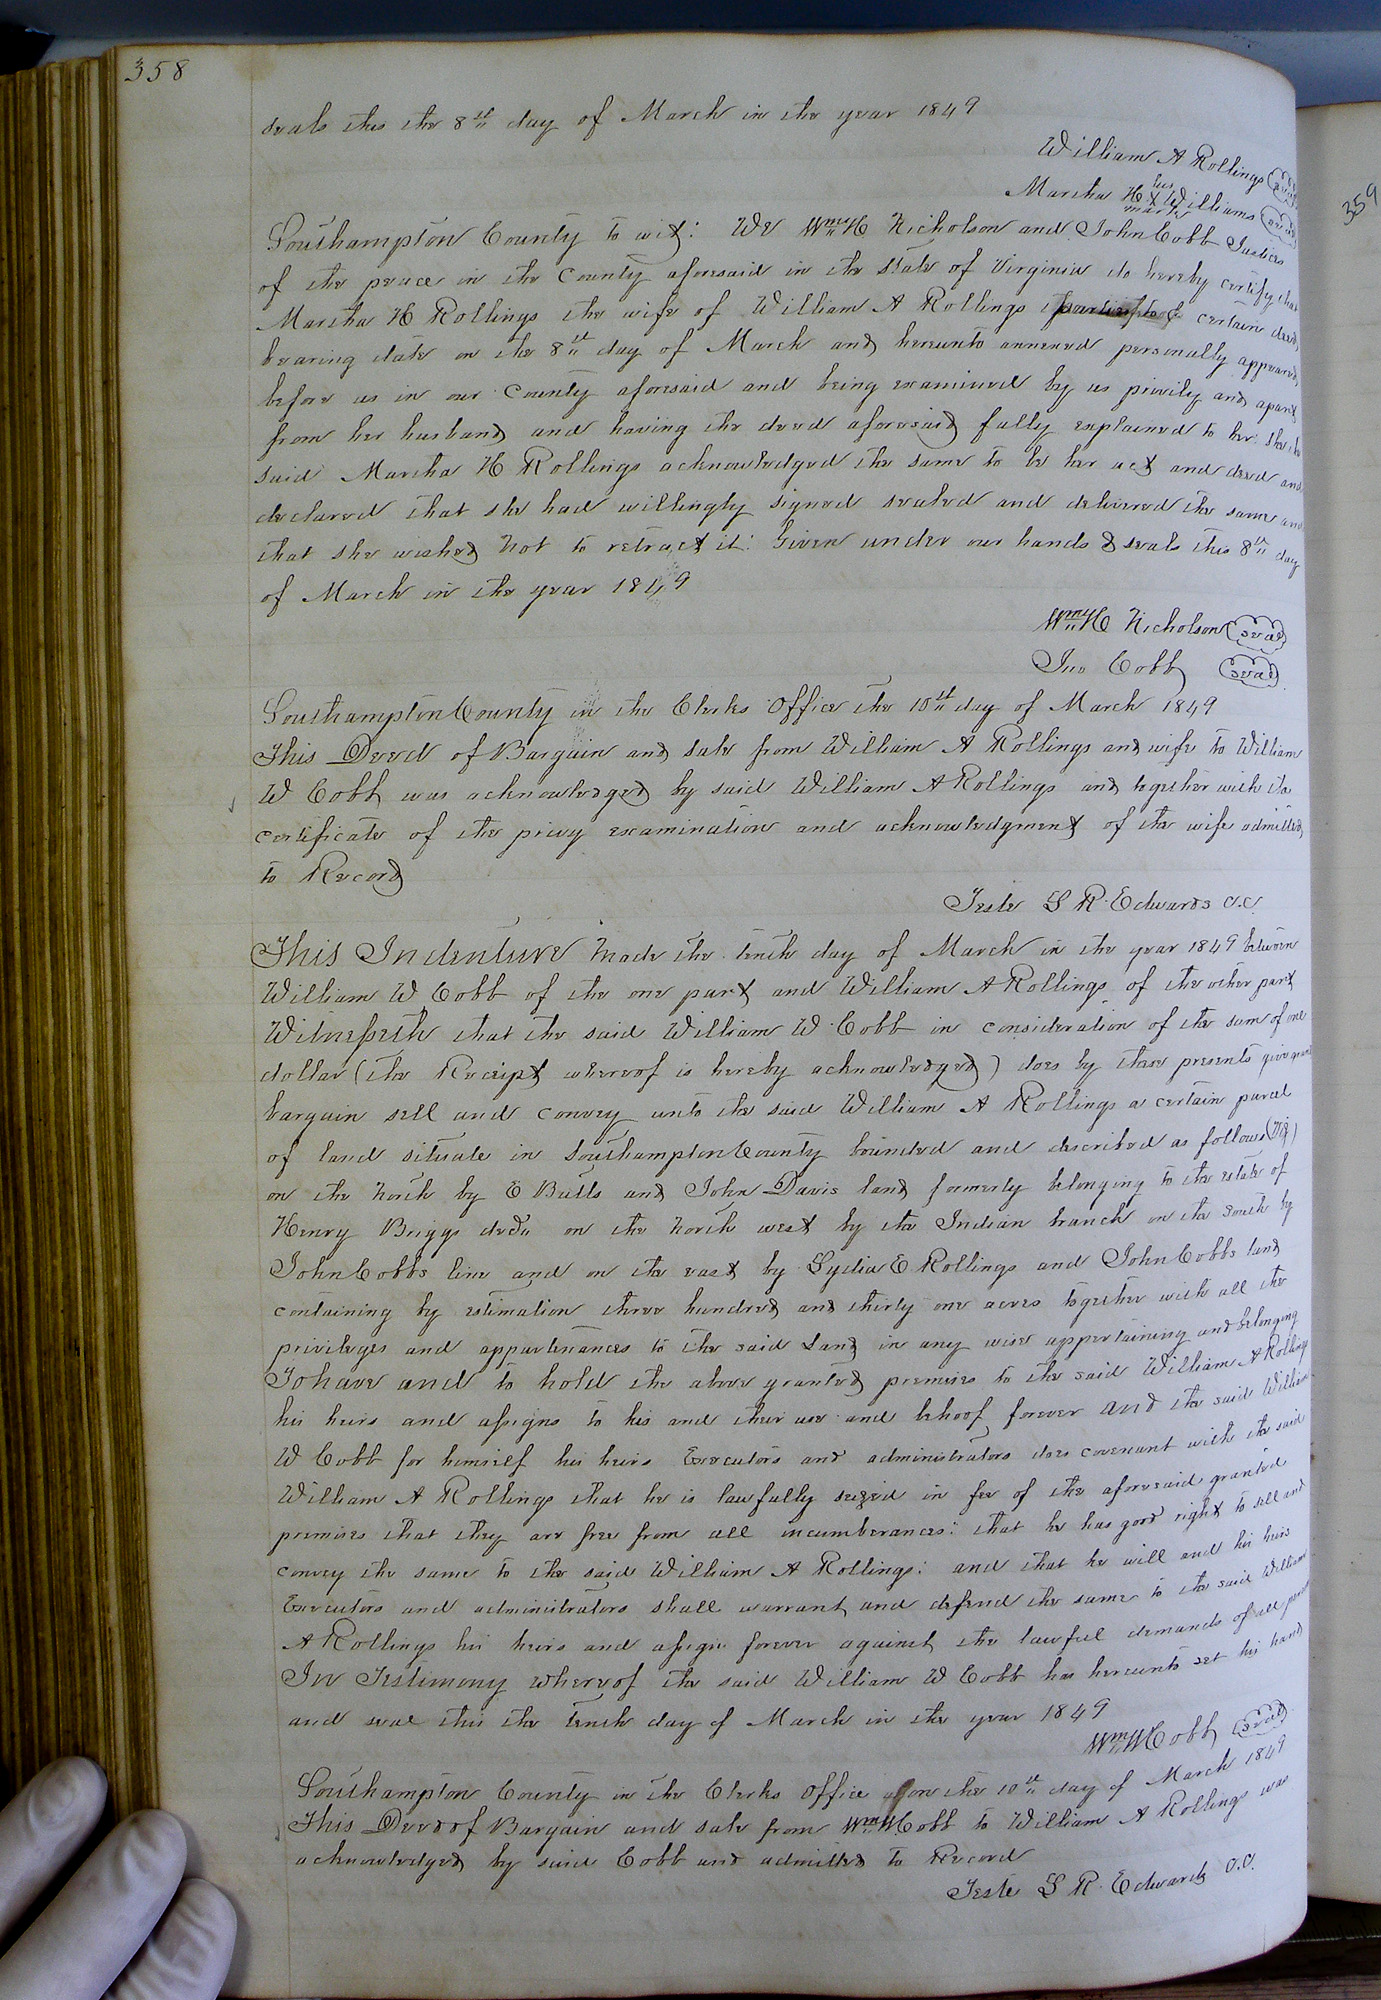 358
seals this the 8th day of March in the year 1849
William A Rollings (seal)
her
Martha H X Williams (seal)
mark
Southampton County to wit: We Wm H Nicholson and John Cobb Justices
of the peace in the County aforesaid in the State of Virginia do hereby certify that
Martha H Rollings the wife of William A Rollings parties to a certain deed
bearing date on the 8th day of March and hereunto annexed personally appeared
before us in our County aforesaid and being examined by us privily and apart
from her husband and having the deed aforesaid fully explained to her: she the
said Martha H Rollings acknowledged the same to be her act and deed and
declared that she had willingly signed sealed and delivered the same and
that she wished not to retract it: Given under our hands & seals this 8th day
of March in the year 1849
Wm H Nicholson (seal)
Jno Cobb (seal)
Southampton County in the Clerks Office the 10th day of March 1849
This Deed of Bargain and sale from William A Rollings and wife to William
W Cobb was acknowledged by said William A Rollings and together with the
certificate of the privy examination and acknowledgment of the wife admitted
to Record
Teste L R Edwards C.C.
This Indenture Made the tenth day of March in the year 1849 between
William W Cobb of the one part and William A Rollings of the other part
Witnesseth that the said William W Cobb in consideration of the sum of one
dollar (the Receipt whereof is hereby acknowledged) does by these presents give grant
bargain sell and convey unto the said William A Rollings a certain parcel
of land situate in Southampton County bounded and described as follows (Viz)
on the North by E Butts and John Davis land formerly belonging to the estate of
Henry Briggs decd on the North west by the Indian branch on the South by
John Cobbs line and on the east by Lydia E Rollings and John Cobbs land
containing by estimation three hundred and thirty one acres together with all the
privileges and appurtenances to the said Land in any wise appertaining and belonging
To have and to hold the above granted premises to the said William A Rollings
his heirs and assigns to his and their use and behoof forever And the said William
W Cobb for himself his heirs Executors and administrators does covenant with the said
William A Rollings that he is lawfully seized in fee of the aforesaid granted
premises that they are free from all incumberances: that he has good right to sell and
convey the same to the said William A Rollings: and that he will and his heirs
Executors and administrators shall warrant and defend the same to the said William
A Rollings his heirs and assigns forever against the lawful demands of all persons
In Testimony whereof the said William W Cobb has hereunto set his hand
and seal this the tenth day of March in the year 1849
Wm W Cobb (seal)
Southampton County in the Clerks Office on the 10th day of March 1849
This Deed of Bargain and sale from Wm W Cobb to William A Rollings was
acknowledged by said Cobb and admitted to Record
Teste L R Edwards C.C.
359